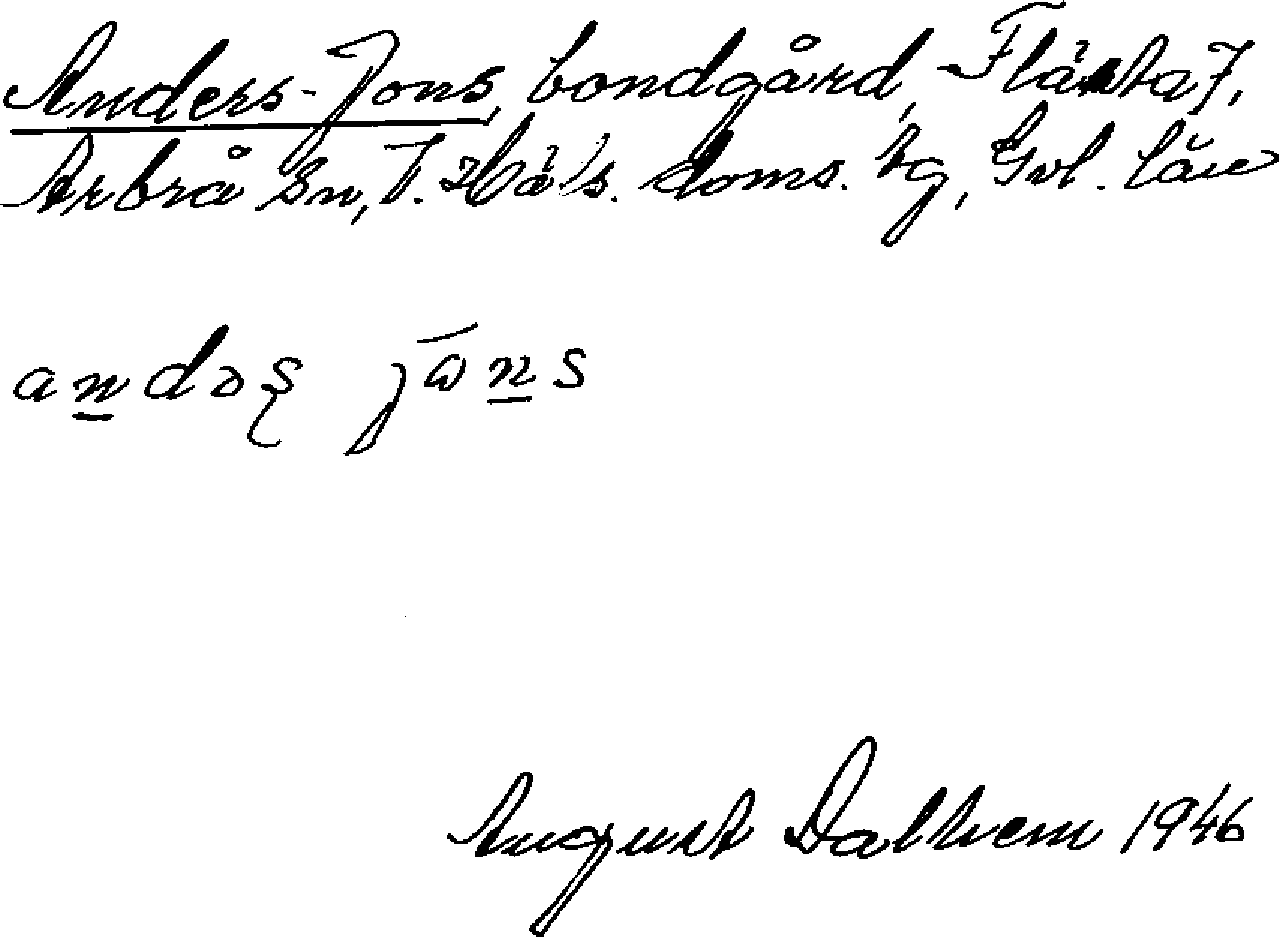 Anders-Jons, bondgård, Flästa 7,
Arbrå sn, V. Häls. doms. tg, Gvl. län
andəʂ jōns
August Dalhem 1946